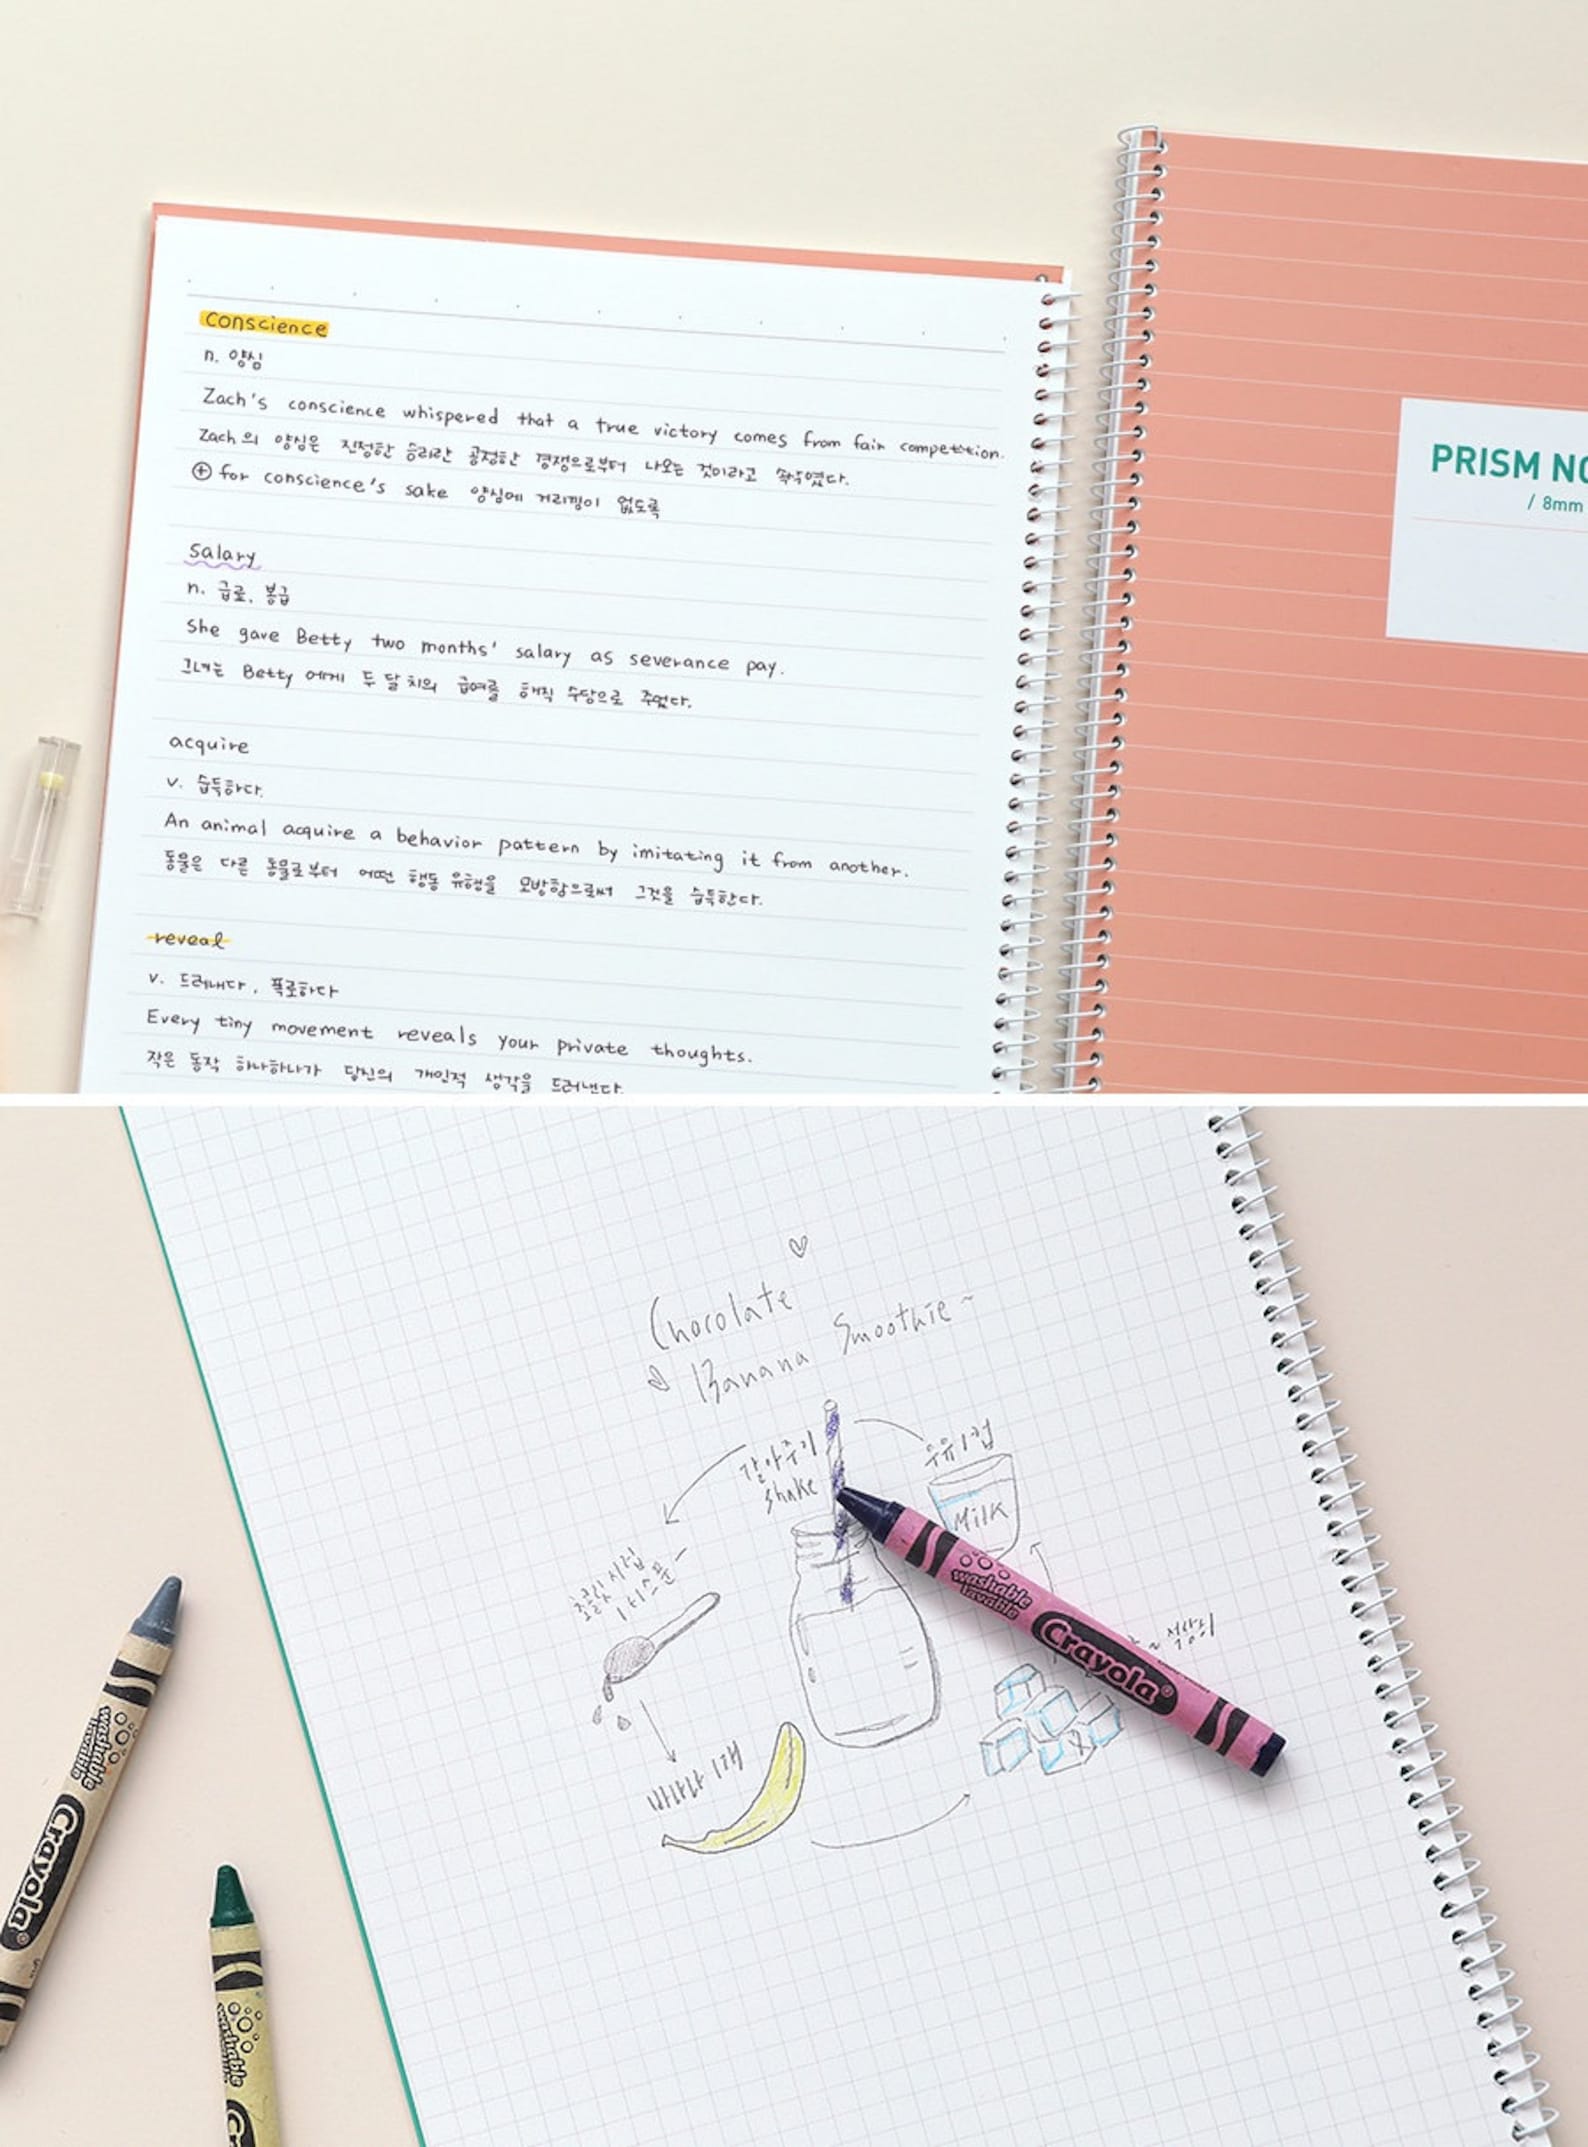 conscience
n. 양심
Zach's conscience whispered that a true victory comes from fair competition.
Zach의 양심은 진정한 승리란 공정한 경쟁으로부터 나오는 것이라고 속삭였다.
⊕ for conscience's sake 양심에 거리낌이 없도록
salary
n. 급료, 봉급
She gave Betty two months' salary as severance pay.
그녀는 Betty에게 두 달 치의 급여를 해직 수당으로 주었다.
acquire
v. 습득하다.
An animal acquire a behavior pattern by imitating it from another.
동물은 다른 동물로부터 어떤 행동 유형을 모방함으로써 그것을 습득한다.
reveal
v. 드러내다, 폭로하다
Every tiny movement reveals your private thoughts.
작은 동작 하나하나가 당신의 개인적 생각을 드러낸다.
PRISM NO
/ 8mm
Chocolate
Banana Smoothie~
갈아주기
shake
우유 1컵
Milk
초콜릿 시럽
1 티스푼
바나나 1개
washable
lavable
Crayola
washable
lavable
Crayola
washable
lavable